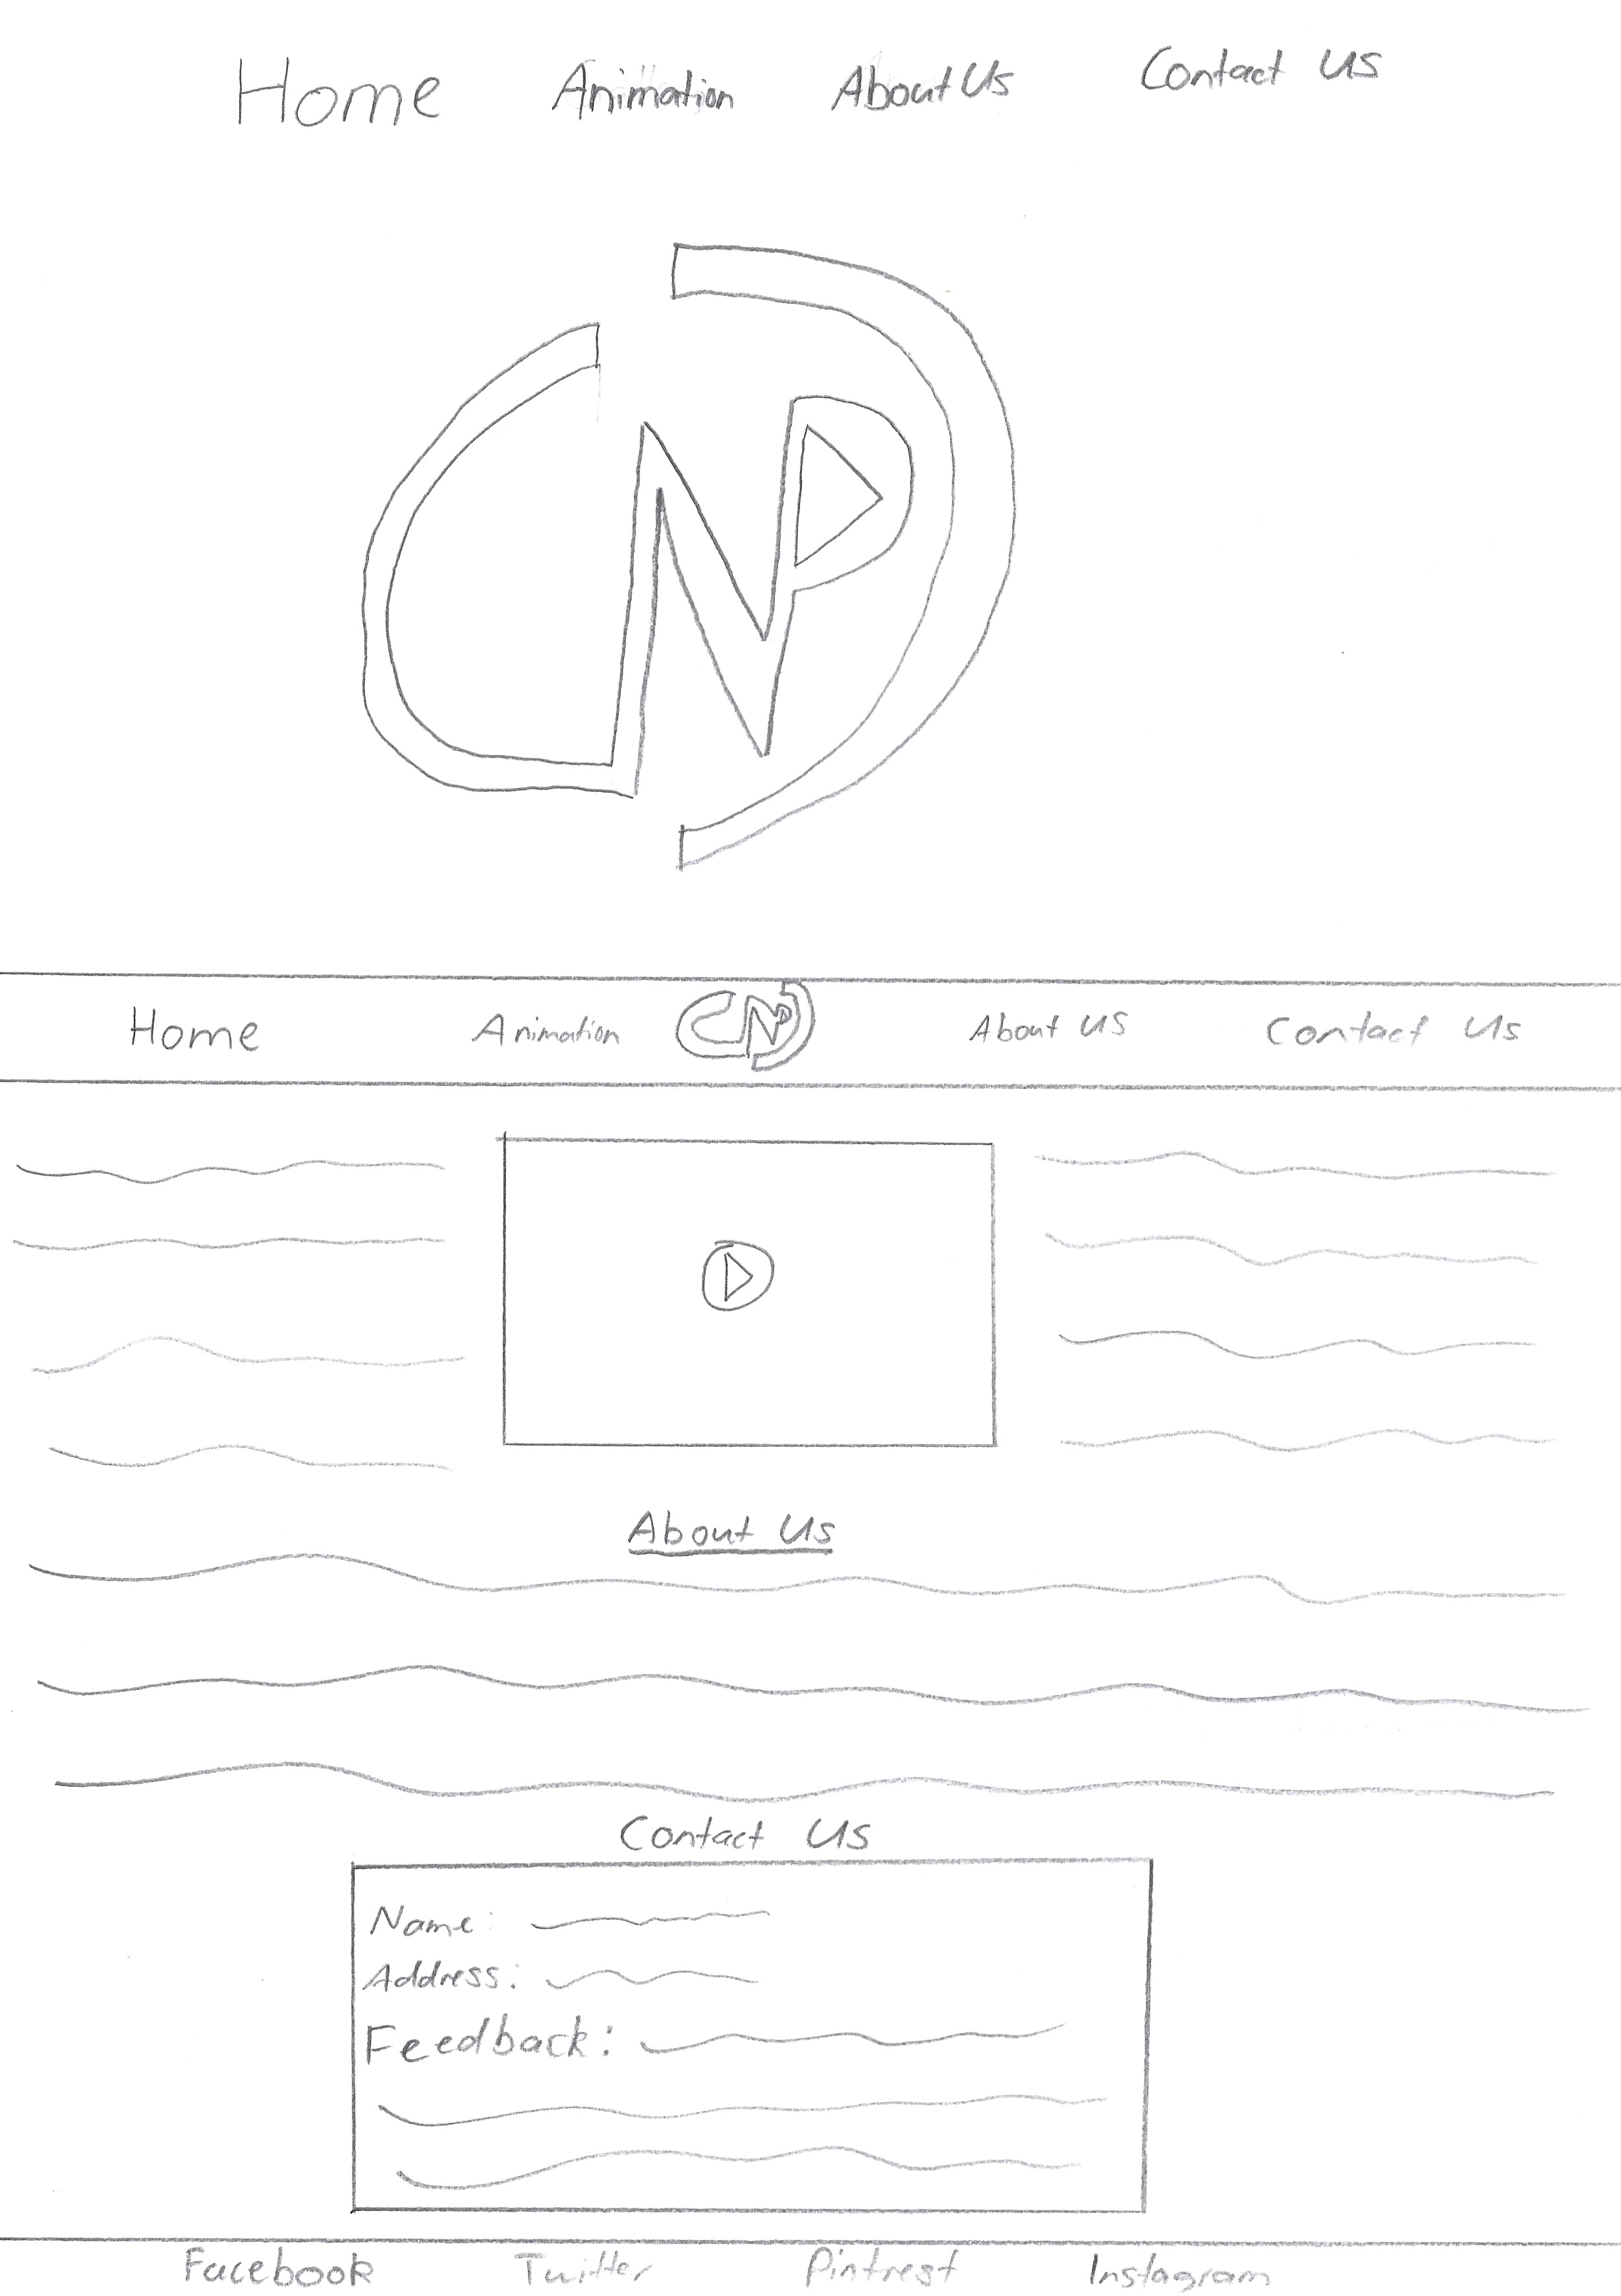 Home Animation About Us Contact Us
CNP
Home Animation CNP About Us Contact Us
About Us
Contact Us
Name:
Address:
Feedback:
Facebook Twitter Pintrest Instagram